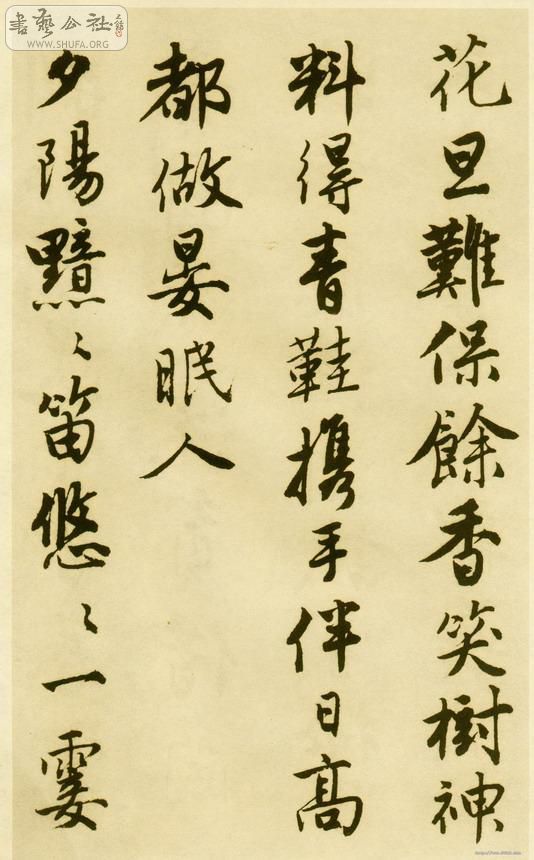 書藝公社
WWW.SHUFA.ORG
花旦難保餘香笑樹神
料得青鞋攜手伴日高
都做晏眠人
夕陽黯〻笛悠〻一霎